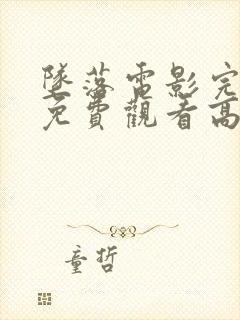 墜落電影完
免費觀看高
童哲